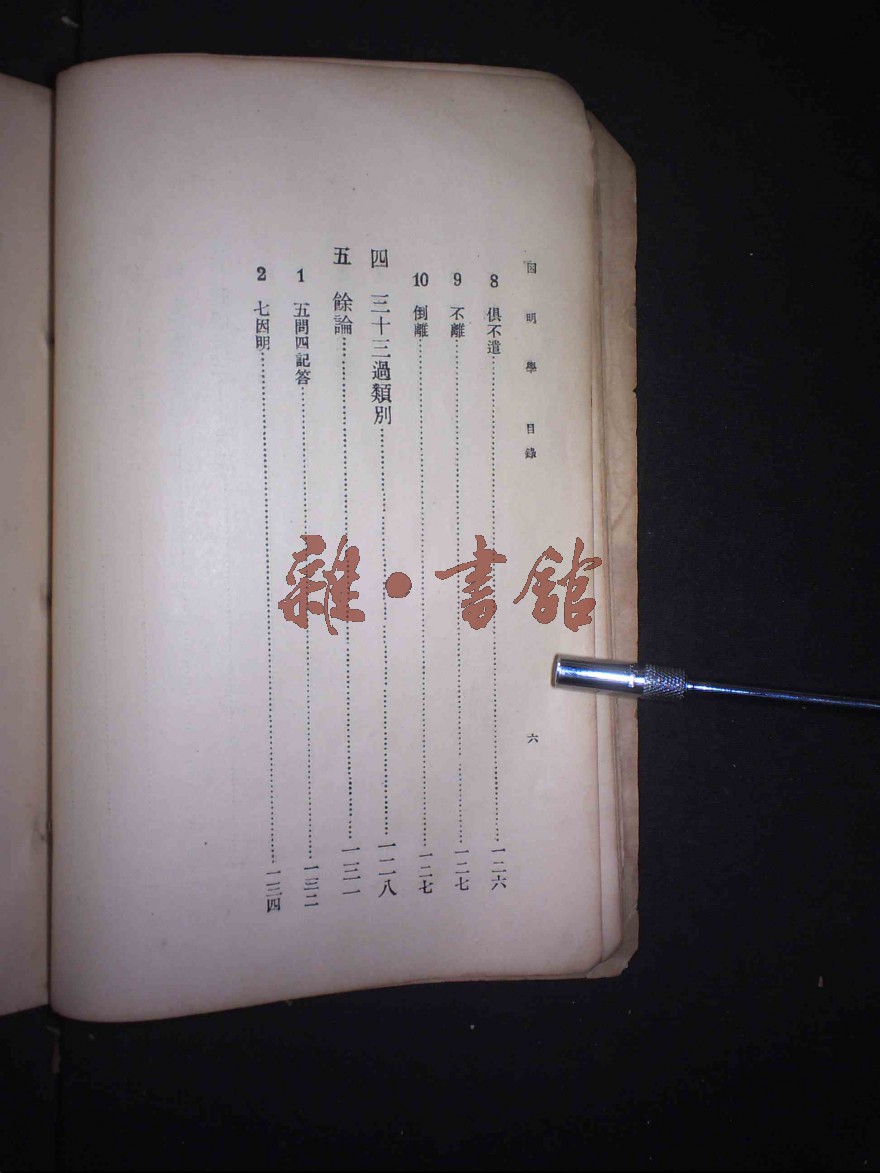 因明學 目錄 六
8 俱不遣……一二六
9 不離……一二七
10 倒離……一二七
四 三十三過類別……一二八
五 餘論……一三一
1 五問四記答……一三二
2 七因明……一三四
雜·書館